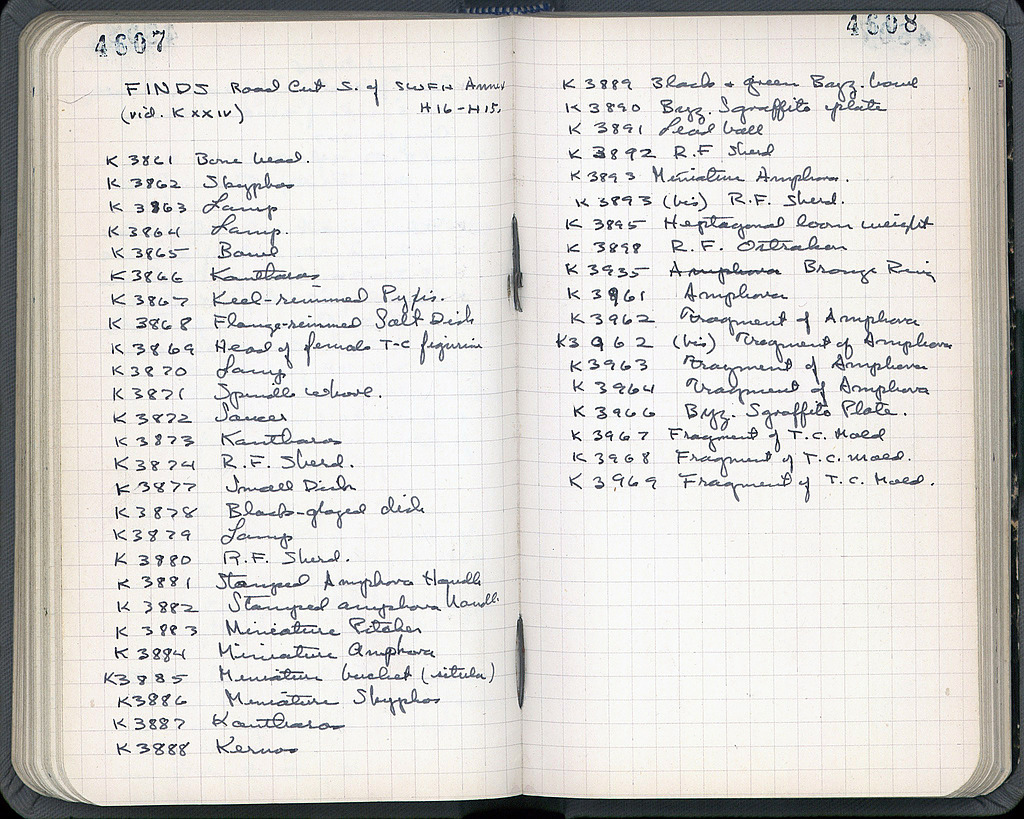 4607
FINDS Road Cut S. of SWFH Annex
(vid. K xxiv) H16-H15.
K 3861 Bone bead.
K 3862 Skyphos
K 3863 Lamp
K 3864 Lamp.
K 3865 Bowl
K 3866 Kantharos
K 3867 Keel-rimmed Pyxis.
K 3868 Flange-rimmed Salt Dish
K 3869 Head of female T-C figurine
K 3870 Lamp
K 3871 Spindle whorl.
K 3872 Saucer
K 3873 Kantharos
K 3874 R.F. Sherd.
K 3877 Small Dish
K 3878 Black-glazed dish
K 3879 Lamp
K 3880 R.F. Sherd.
K 3881 Stamped Amphora Handle
K 3882 Stamped amphora handle
K 3883 Miniature Pitcher
K 3884 Miniature Amphora
K 3885 Miniature bucket (situla)
K 3886 Miniature Skyphos
K 3887 Kantharos
K 3888 Kernos
4608
K 3889 Black + green Byz. bowl
K 3890 Byz. Sgraffito plate
K 3891 Lead ball
K 3892 R.F Sherd
K 3893 Miniature Amphora.
K 3893 (bis) R.F. Sherd.
K 3895 Heptagonal loom weight
K 3898 R.F. Ostrakon
K 3935 Amphora Bronze Ring
K 3961 Amphora
K 3962 Fragment of Amphora
K 3962 (bis) Fragment of Amphora
K 3963 Fragment of Amphora
K 3964 Fragment of Amphora
K 3966 Byz. Sgraffito Plate.
K 3967 Fragment of T.C. Mold
K 3968 Fragment of T.C. Mold.
K 3969 Fragment of T.C. Mold.